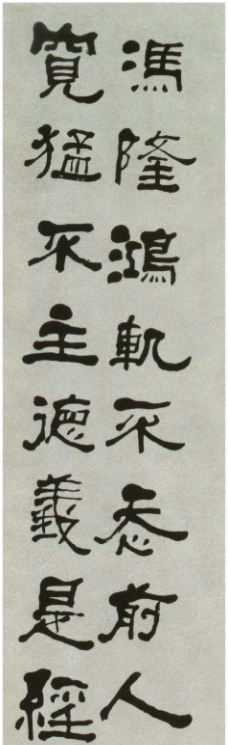 馮隆鴻軌不忝前人
寬猛不主德義是經